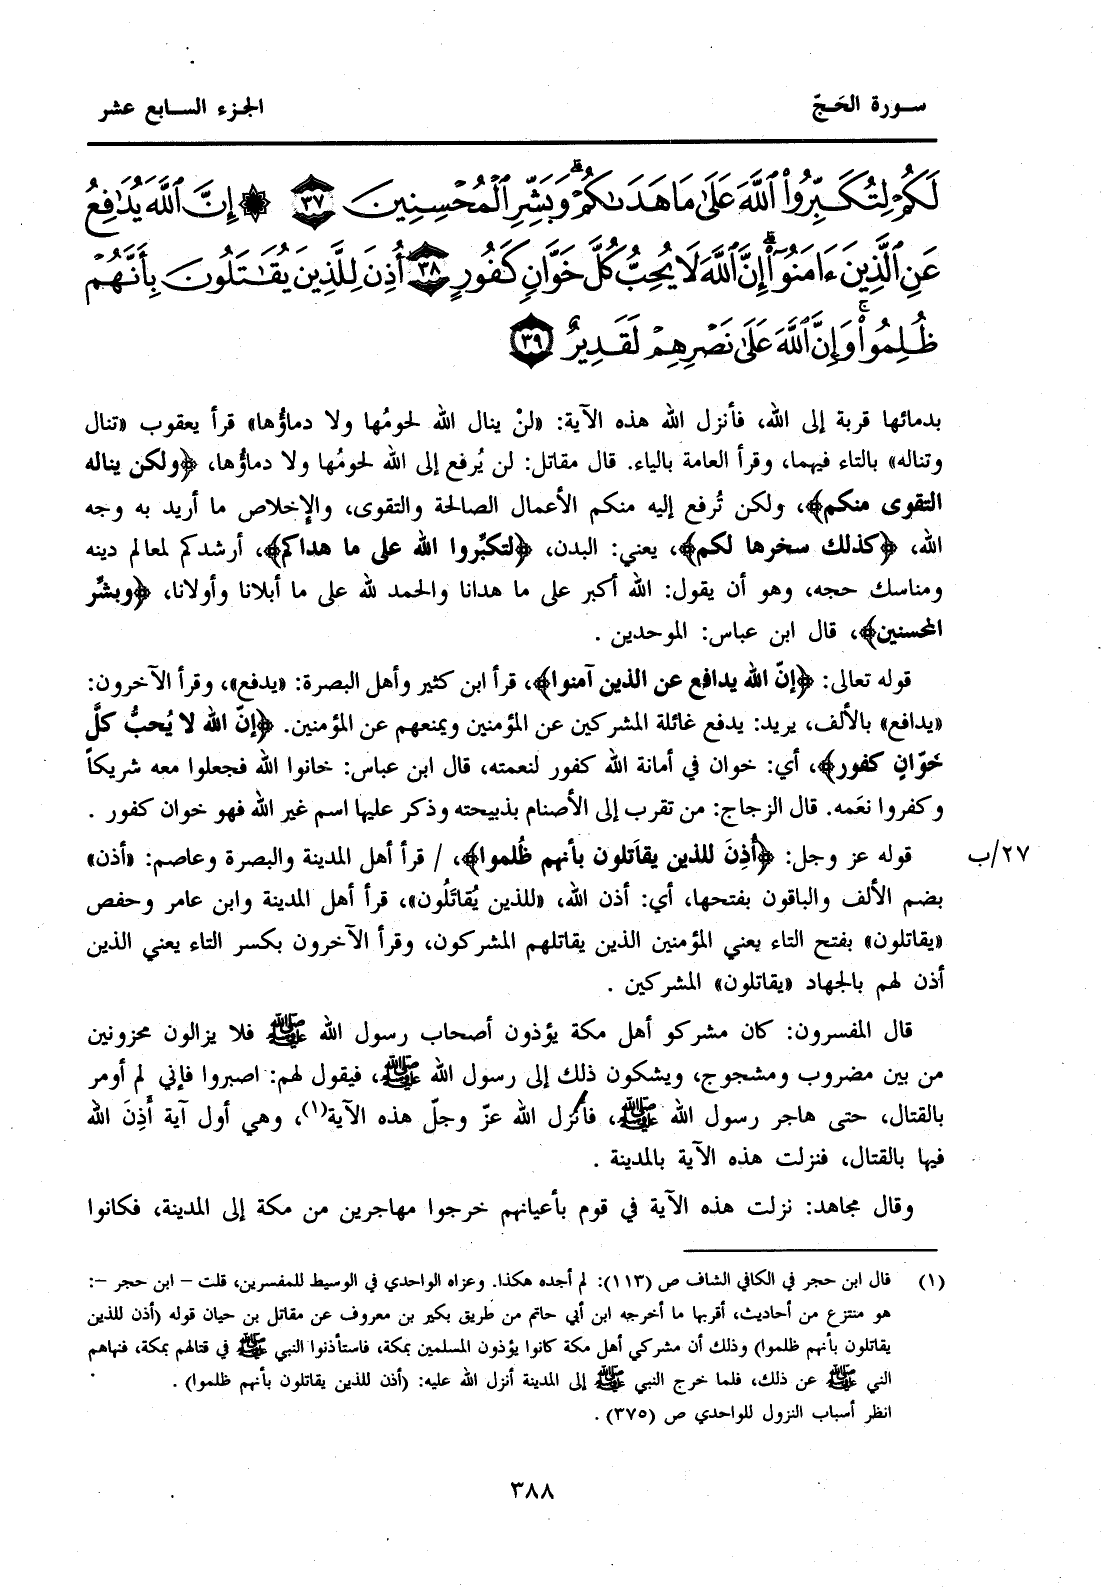 سورة الحَجّ
الجزء السابع عشر
لَكُمْ لِتُكَبِّرُوا۟ ٱللَّهَ عَلَىٰ مَا هَدَىٰكُمْ ۗ وَبَشِّرِ ٱلْمُحْسِنِينَ ٣٧ ۞ إِنَّ ٱللَّهَ يُدَٰفِعُ
عَنِ ٱلَّذِينَ ءَامَنُوٓا۟ ۗ إِنَّ ٱللَّهَ لَا يُحِبُّ كُلَّ خَوَّانٍ كَفُورٍ ٣٨ أُذِنَ لِلَّذِينَ يُقَٰتَلُونَ بِأَنَّهُمْ
ظُلِمُوا۟ ۚ وَإِنَّ ٱللَّهَ عَلَىٰ نَصْرِهِمْ لَقَدِيرٌ ٣٩
بدمائها قربة إلى الله، فأنزل الله هذه الآية: «لنْ ينال الله لحومُها ولا دماؤُها» قرأ يعقوب «تنال
وتناله» بالتاء فيهما، وقرأ العامة بالياء. قال مقاتل: لن يُرفع إلى الله لحومُها ولا دماؤُها، ﴿ولكن يناله
التقوى منكم﴾، ولكن تُرفع إليه منكم الأعمال الصالحة والتقوى، والإخلاص ما أريد به وجه
الله، ﴿كذلك سخرها لكم﴾، يعني: البدن، ﴿لتكبِّروا الله على ما هداكم﴾، أرشدكم لمعالم دينه
ومناسك حجه، وهو أن يقول: الله أكبر على ما هدانا والحمد لله على ما أبلانا وأولانا، ﴿وبشِّر
المحسنين﴾، قال ابن عباس: الموحدين .
قوله تعالى: ﴿إنّ الله يدافع عن الذين آمنوا﴾، قرأ ابن كثير وأهل البصرة: «يدفع»، وقرأ الآخرون:
«يدافع» بالألف، يريد: يدفع غائلة المشركين عن المؤمنين ويمنعهم عن المؤمنين. ﴿إنّ الله لا يُحبُّ كلَّ
خَوّانٍ كفور﴾، أي: خوان في أمانة الله كفور لنعمته، قال ابن عباس: خانوا الله فجعلوا معه شريكاً
وكفروا نعَمه. قال الزجاج: من تقرب إلى الأصنام بذبيحته وذكر عليها اسم غير الله فهو خوان كفور .
٢٧/ب
قوله عز وجل: ﴿أُذِنَ للذين يقاتَلون بأنهم ظُلموا﴾، / قرأ أهل المدينة والبصرة وعاصم: «أذن»
بضم الألف والباقون بفتحها، أي: أذن الله، «للذين يُقاتَلُون»، قرأ أهل المدينة وابن عامر وحفص
«يقاتلون» بفتح التاء يعني المؤمنين الذين يقاتلهم المشركون، وقرأ الآخرون بكسر التاء يعني الذين
أذن لهم بالجهاد «يقاتلون» المشركين .
قال المفسرون: كان مشركو أهل مكة يؤذون أصحاب رسول الله ﷺ فلا يزالون محزونين
من بين مضروب ومشجوج، ويشكون ذلك إلى رسول الله ﷺ، فيقول لهم: اصبروا فإني لم أومر
بالقتال، حتى هاجر رسول الله ﷺ، فأنزل الله عزّ وجلّ هذه الآية(١)، وهي أول آية أَذِنَ الله
فيها بالقتال، فنزلت هذه الآية بالمدينة .
وقال مجاهد: نزلت هذه الآية في قوم بأعيانهم خرجوا مهاجرين من مكة إلى المدينة، فكانوا
(١) قال ابن حجر في الكافي الشاف ص (١١٣): لم أجده هكذا. وعزاه الواحدي في الوسيط للمفسرين، قلت – ابن حجر –:
هو منتزع من أحاديث، أقربها ما أخرجه ابن أبي حاتم من طريق بكير بن معروف عن مقاتل بن حيان قوله (أذن للذين
يقاتلون بأنهم ظلموا) وذلك أن مشركي أهل مكة كانوا يؤذون المسلمين بمكة، فاستأذنوا النبي ﷺ في قتالهم بمكة، فنهاهم
النبي ﷺ عن ذلك، فلما خرج النبي ﷺ إلى المدينة أنزل الله عليه: (أذن للذين يقاتلون بأنهم ظلموا) .
انظر أسباب النزول للواحدي ص (٣٧٥) .
٣٨٨